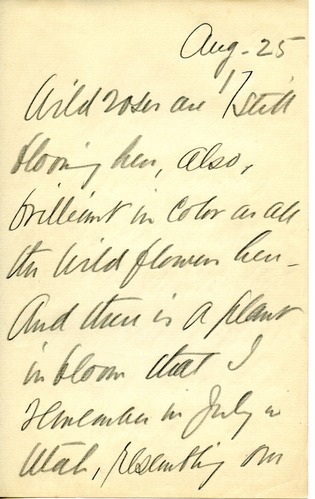 Aug - 25
17
Wild roses are still
blooming here, also,
brilliant in color as all
the wild flowers here -
And there is a plant
in bloom that I
remember in July in
Utah, resembling our